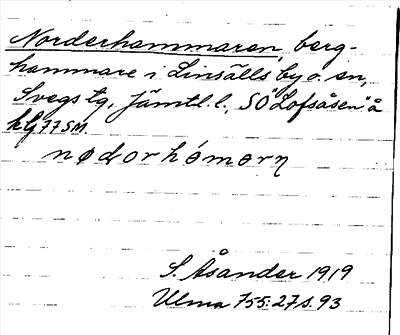 Norderhammaren, berg-
hammare i Linsälls by o. sn,
Svegs tg, Jämtl. l., SÖ "Lofsåsen" å
kbl 77 SM.
nødorhómorn
S. Åsander 1919
Ulma 755:27 s. 93